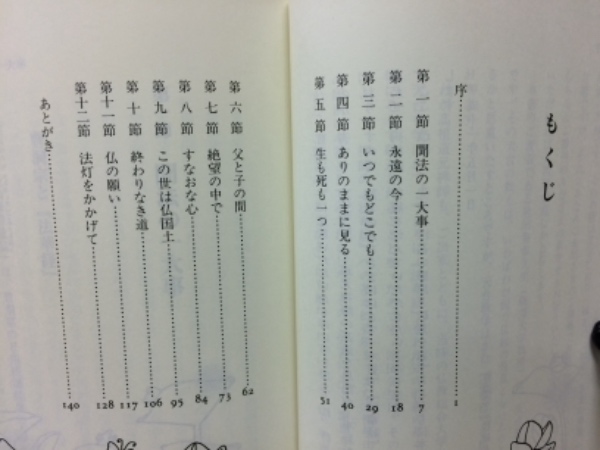 もくじ
序 1
第一節 聞法の一大事 7
第二節 永遠の今 18
第三節 いつでもどこでも 29
第四節 ありのままに見る 40
第五節 生も死も一つ 51
第六節 父と子の間 62
第七節 絶望の中で 73
第八節 すなおな心 84
第九節 この世は仏国土 95
第十節 終わりなき道 106
第十一節 仏の願い 117
第十二節 法灯をかかげて 128
あとがき 140